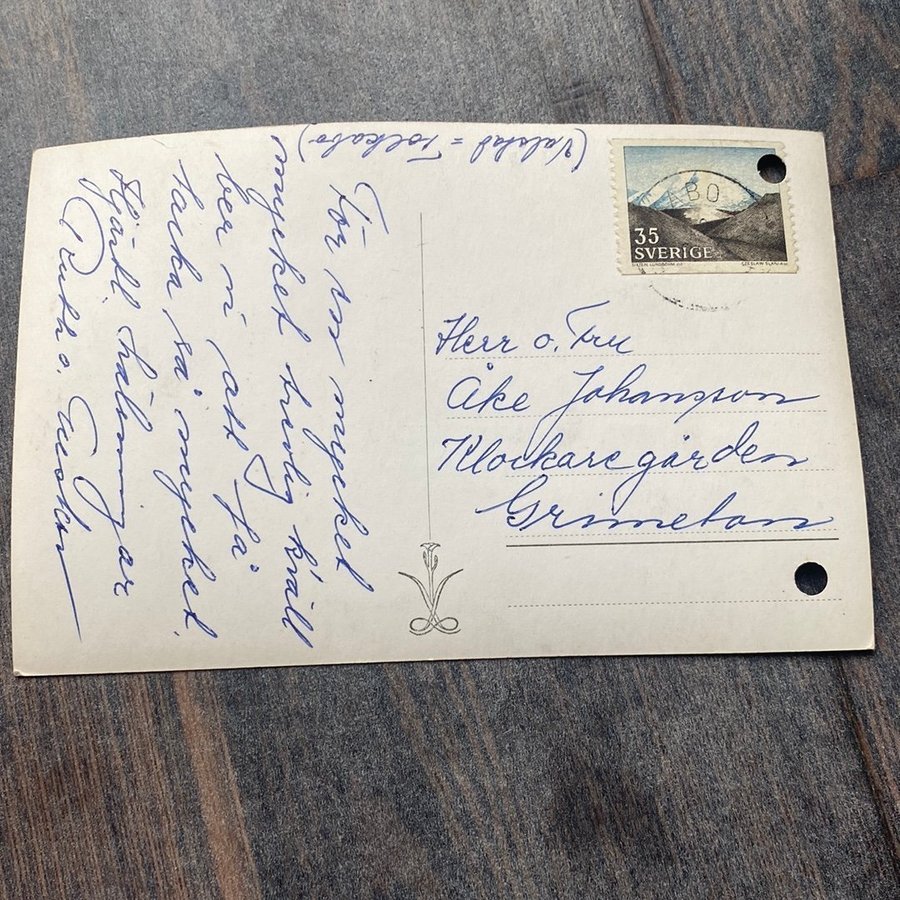 (Valstad = Folkabo)
För en mycket
mycket trevlig kväll
ber vi att få
tacka så mycket.
Hjärtl. hälsningar
Ruth o.
35
SVERIGE
ABO
Herr o. Fru
Åke Johansson
Klockaregården
Grimeton